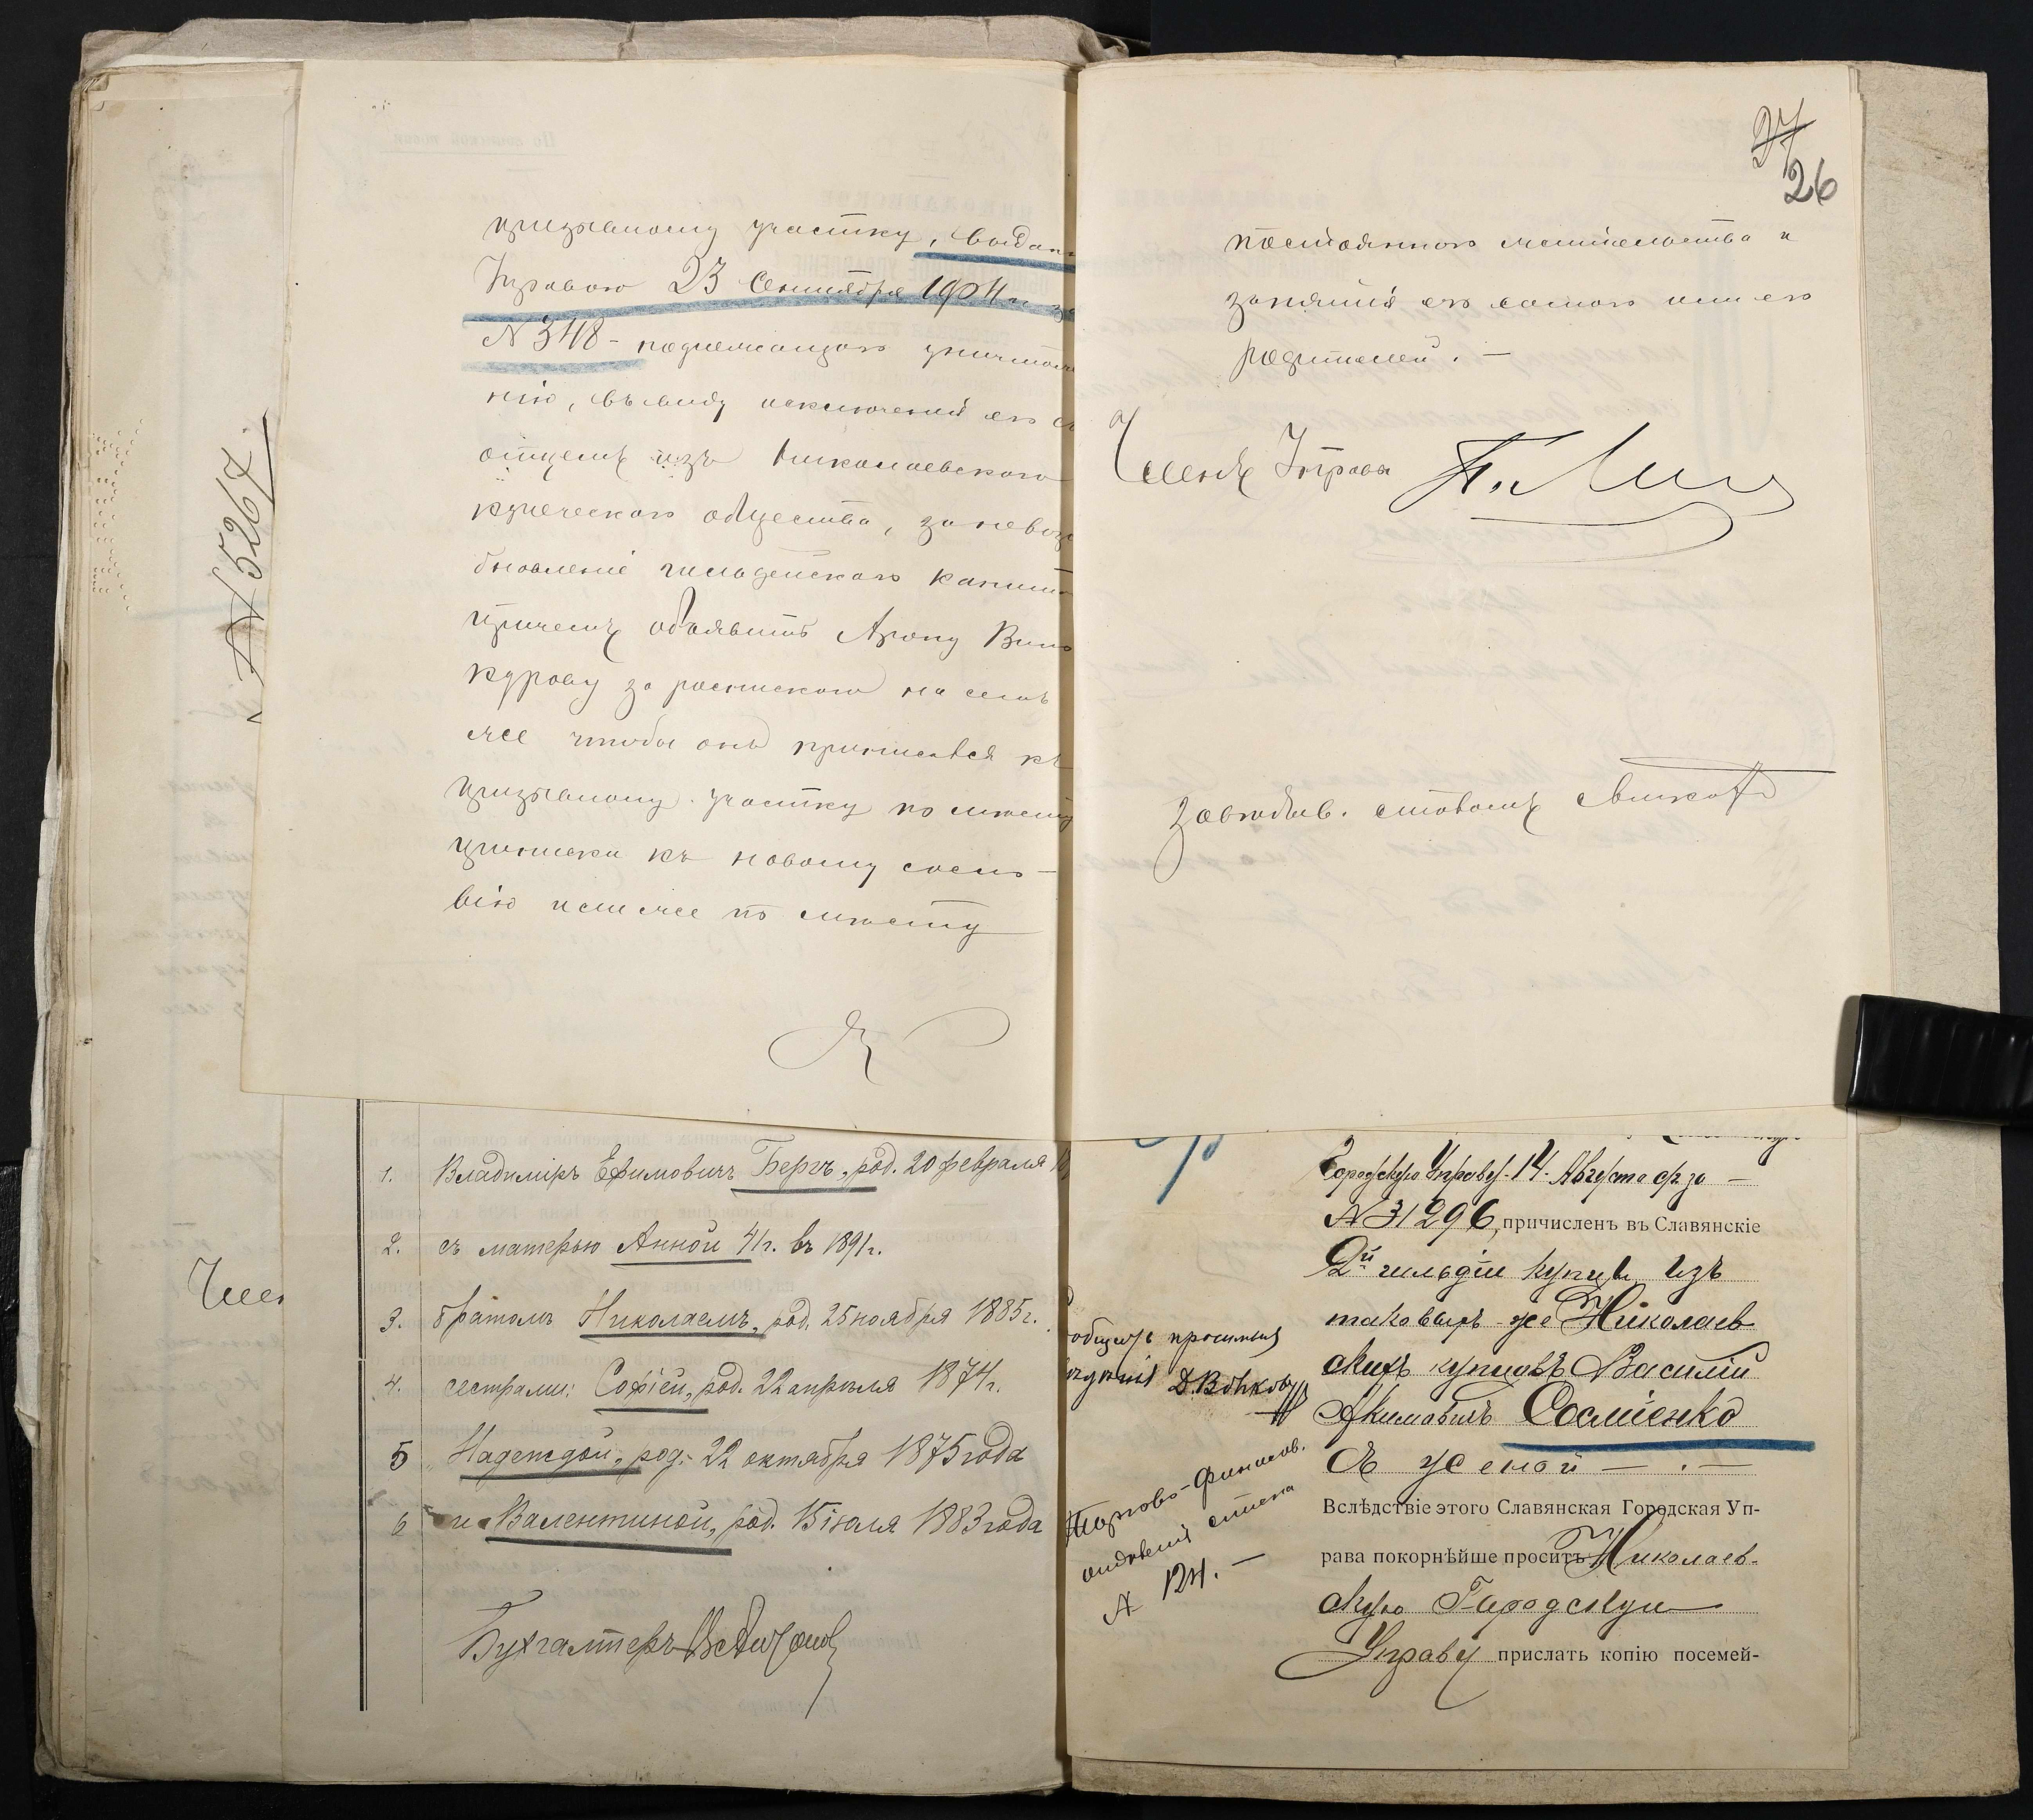 призывному участку, выдан
Управою 23 Сентября 1904 г за
№ 348 - подлежащаго уничтоже
нію, въ виду исключенія его съ
отцемъ изъ Николаевскаго
купеческаго общества, за невозо
бновленіе гильдейскаго капит
причемъ объявить Арону Вино
курову за роспискою на семъ
же чтобы онъ приписался къ
призывному участку по месту
приписки къ новому сосло-
вію или же по месту
27
26
постояннаго жительства и
занятія его самого или его
родителей. -
Членъ Управы
Завѣдыв. столомъ
№ 5267.
Член
1. Владиміръ Ефимовичъ Бергъ, род. 20 февраля
2. съ матерью Анной 41 г. въ 1891 г.
3. братомъ Николаемъ, род. 25 ноября 1885 г.
4. сестрами: Софіей, род. 22 апрѣля 1874 г.
5 Надеждой, род. 22 октября 1875 года
6 и Валентиной, род. 15 іюля 1883 года
Бухгалтеръ
Городскую Управу 14 Августа ср за -
№ 31296, причисленъ въ Славянскіе
2й гильдіи купцы изъ
таковыхъ же Николаев
скихъ купцовъ Василій
Акимовичъ Сосміенко
съ женой - . -
Вслѣдствіе этого Славянская Городская Уп-
рава покорнѣйше проситъ Николаев-
скую Городскую
Управу прислать копію посемей-
Торгово-Финансов.
отдѣленія стола
№ 124. -